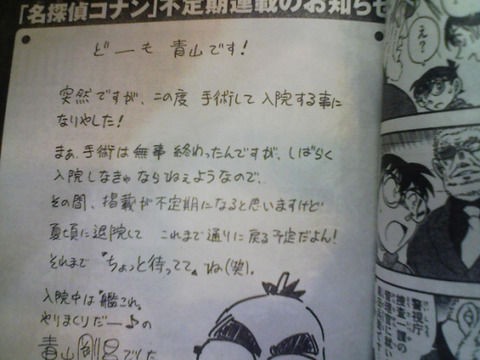 「名探偵コナン」不定期連載のお知らせ
どーも 青山です!
突然ですが、この度 手術して入院する事に
なりやした!
まぁ、手術は無事 終わったんですが、しばらく
入院しなきゃならねぇようなので、
その間、掲載が不定期になると思いますけど
夏頃に退院して これまで通りに戻る予定だよん!
それまで“ちょっと待ってて”ね(笑)。
入院中は“艦これ”
やりまくりだー♪の
青山剛昌でした
え?
警視庁
捜査一課の
管理官に疑い